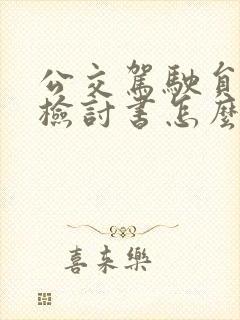 公交駕駛員
檢討書怎麼
喜來樂